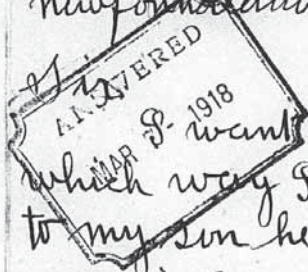 Newfoundland
Sir
ANSWERED
MAR 1918
I want
which way I
to my son he